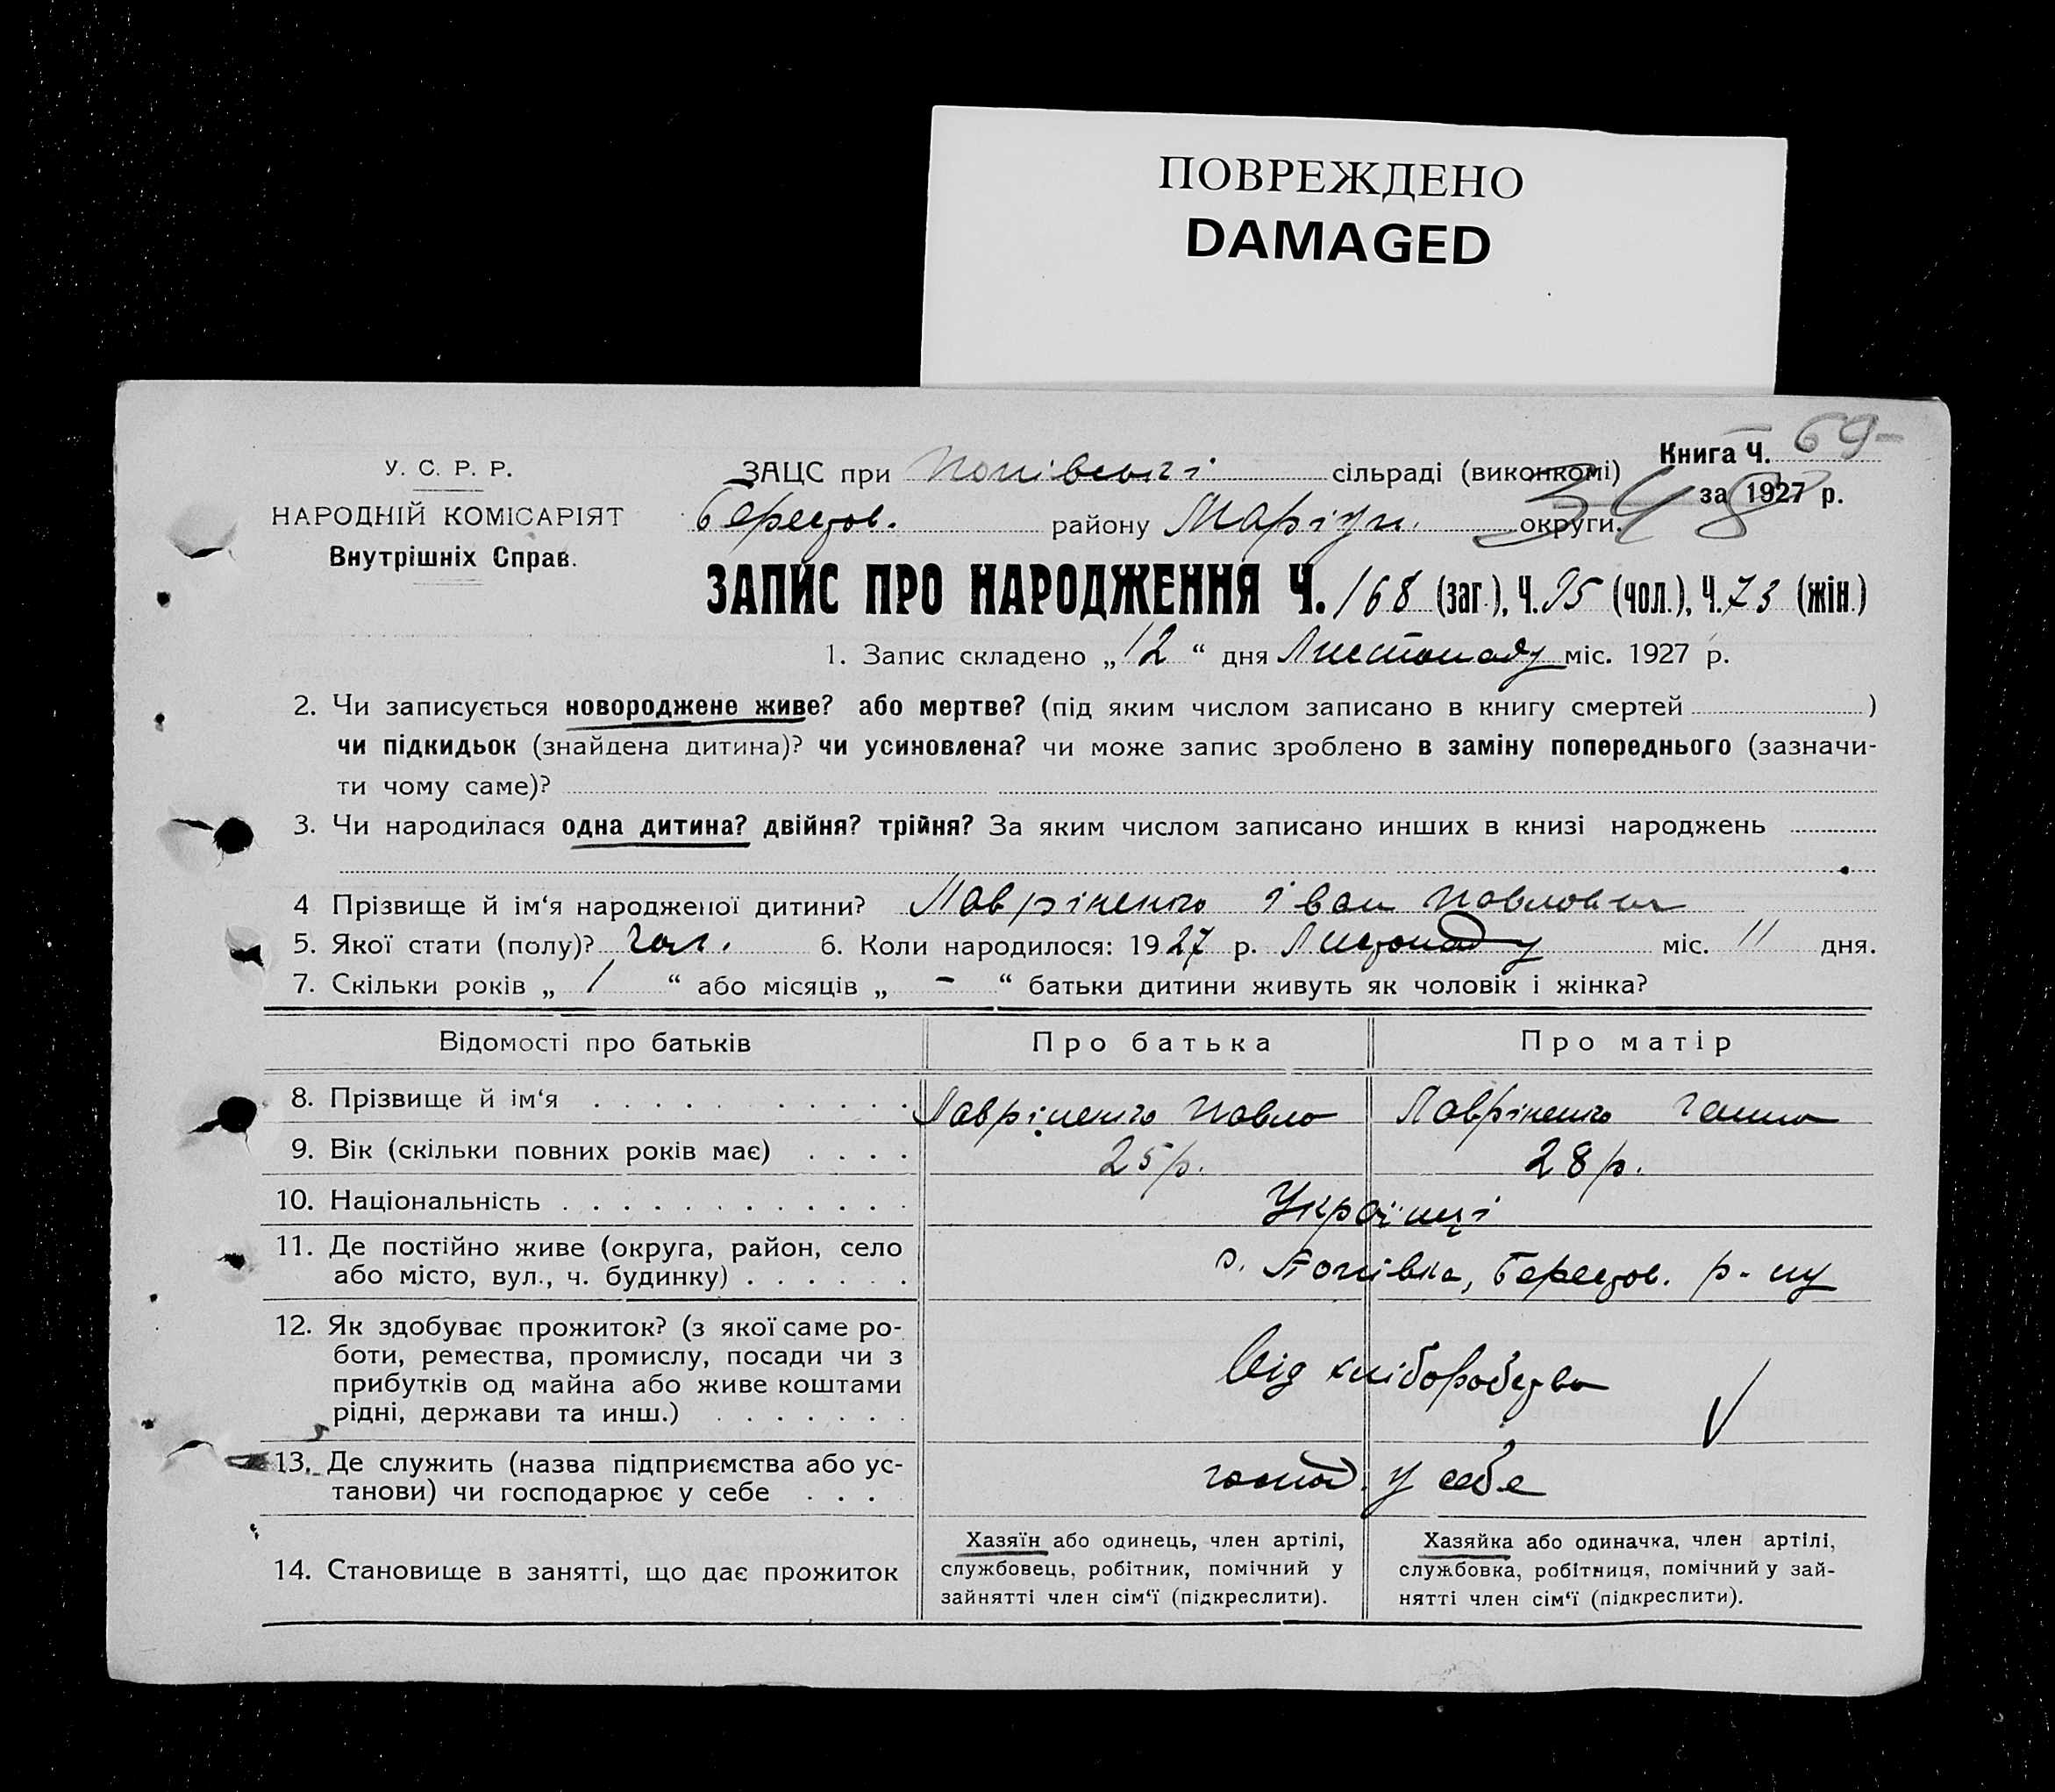 ПОВРЕЖДЕНО
DAMAGED
Книга Ч. 69
за 1927 р.
348
У. С. Р. Р.
НАРОДНІЙ КОМІСАРІЯТ
Внутрішніх Справ.
ЗАЦС при Попівській сільраді (виконкомі)
Берестов. району Маріуп. округи.
ЗАПИС ПРО НАРОДЖЕННЯ Ч. 168 (заг.), Ч. 95 (чол.), Ч. 73 (жін.)
1. Запис складено „ 12 “ дня Листопаду міс. 1927 р.
2. Чи записується новороджене живе? або мертве? (під яким числом записано в книгу смертей )
чи підкидьок (знайдена дитина)? чи усиновлена? чи може запис зроблено в заміну попереднього (зазначи-
ти чому саме)?
3. Чи народилася одна дитина? двійня? трійня? За яким числом записано инших в книзі народжень
4 Прізвище й ім‘я народженої дитини? Лавріненко Іван Павлович
5. Якої стати (полу)? чол. 6. Коли народилося: 1927 р. Листопаду міс. 11 дня.
7. Скільки років „ 1 “ або місяців „ - “ батьки дитини живуть як чоловік і жінка?
Відомості про батьків Про батька Про матір
8. Прізвище й ім‘я Лавріненко Павло Лавріненко Ганна
9. Вік (скільки повних років має) 25 р. 28 р.
10. Національність Українці
11. Де постійно живе (округа, район, село
або місто, вул., ч. будинку) с. Попівка, Берестов. р-ну
12. Як здобуває прожиток? (з якої саме ро-
боти, ремества, промислу, посади чи з
прибутків од майна або живе коштами
рідні, держави та инш.) Від хліборобства
13. Де служить (назва підприємства або ус-
танови) чи господарює у себе господ. у себе
14. Становище в занятті, що дає прожиток
Хазяїн або одинець, член артілі,
службовець, робітник, помічний у
зайнятті член сім‘ї (підкреслити).
Хазяйка або одиначка, член артілі,
службовка, робітниця, помічний у зай-
нятті член сім‘ї (підкреслити).